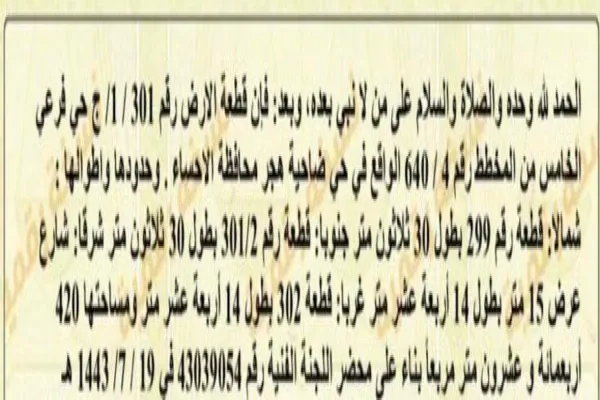 الحمد لله وحده والصلاة والسلام على من لا نبي بعده، وبعد: فإن قطعة الارض رقم 301 / 1/ ج حي فرعي
الخامس من المخطط رقم 4 / 640 الواقع في حي ضاحية هجر محافظة الاحساء . وحدودها واطوالها :
شمالا: قطعة رقم 299 بطول 30 ثلاثون متر جنوبا: قطعة رقم 301/2 بطول 30 ثلاثون متر شرقا: شارع
عرض 15 متر بطول 14 أربعة عشر متر غربا: قطعة 302 بطول 14 أربعة عشر متر ومساحتها 420
أربعمائة و عشرون متر مربعاً بناء على محضر اللجنة الفنية رقم 43039054 في 19 / 7/ 1443 هـ